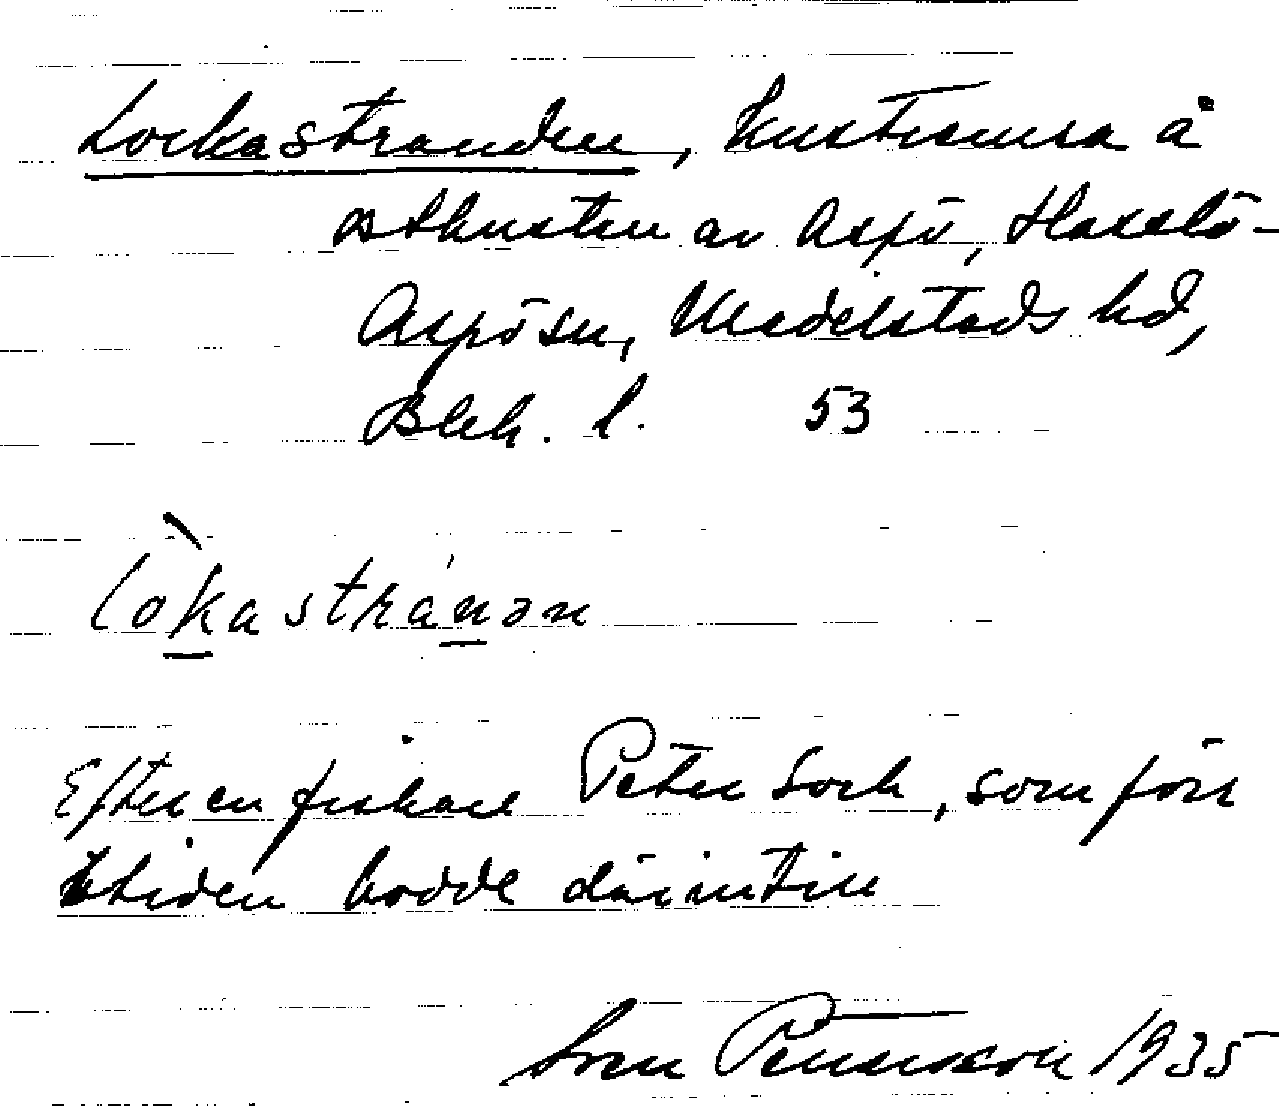 Lockastranden, kustremsa å
ostkusten av Aspö, Hasslö-
Aspö sn, Medelstads hd,
Blek. l. 53
lòkastránən
Efter en fiskare Peter Lock, som förr
i tiden bodde därintill
Sven Petersson 1935